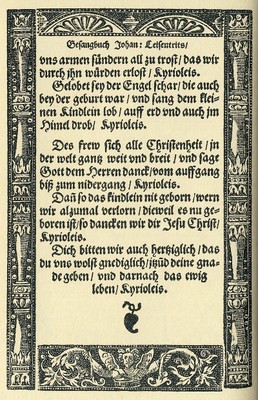 Gesangbuch Johan: Leisentrits/
vns armen sündern all zu trost/das wir
durch jhn würden erlost/Kyrioleis.
Gelobet sey der Engel schar/die auch
bey der geburt war/vnd sang dem klei-
nen Kindlein lob/auff erd vnd auch jm
Himel drob/Kyrioleis.
Des frew sich alle Christenheit/jn
der welt gantz weit vnd breit/vnd sage
Gott dem Herren danck/vom auffgang
biß zum nidergang/Kyrioleis.
Dañ so das kindlein nit geborn/wern
wir alzumal verlorn/dieweil es nu ge-
boren ist/so dancken wir dir Jesu Christ/
Kyrioleis.
Dich bitten wir auch hertziglich/das
du vns wolst gnediglich/itzũd deine gna-
de geben/vnd darnach das ewig
leben/Kyrioleis.